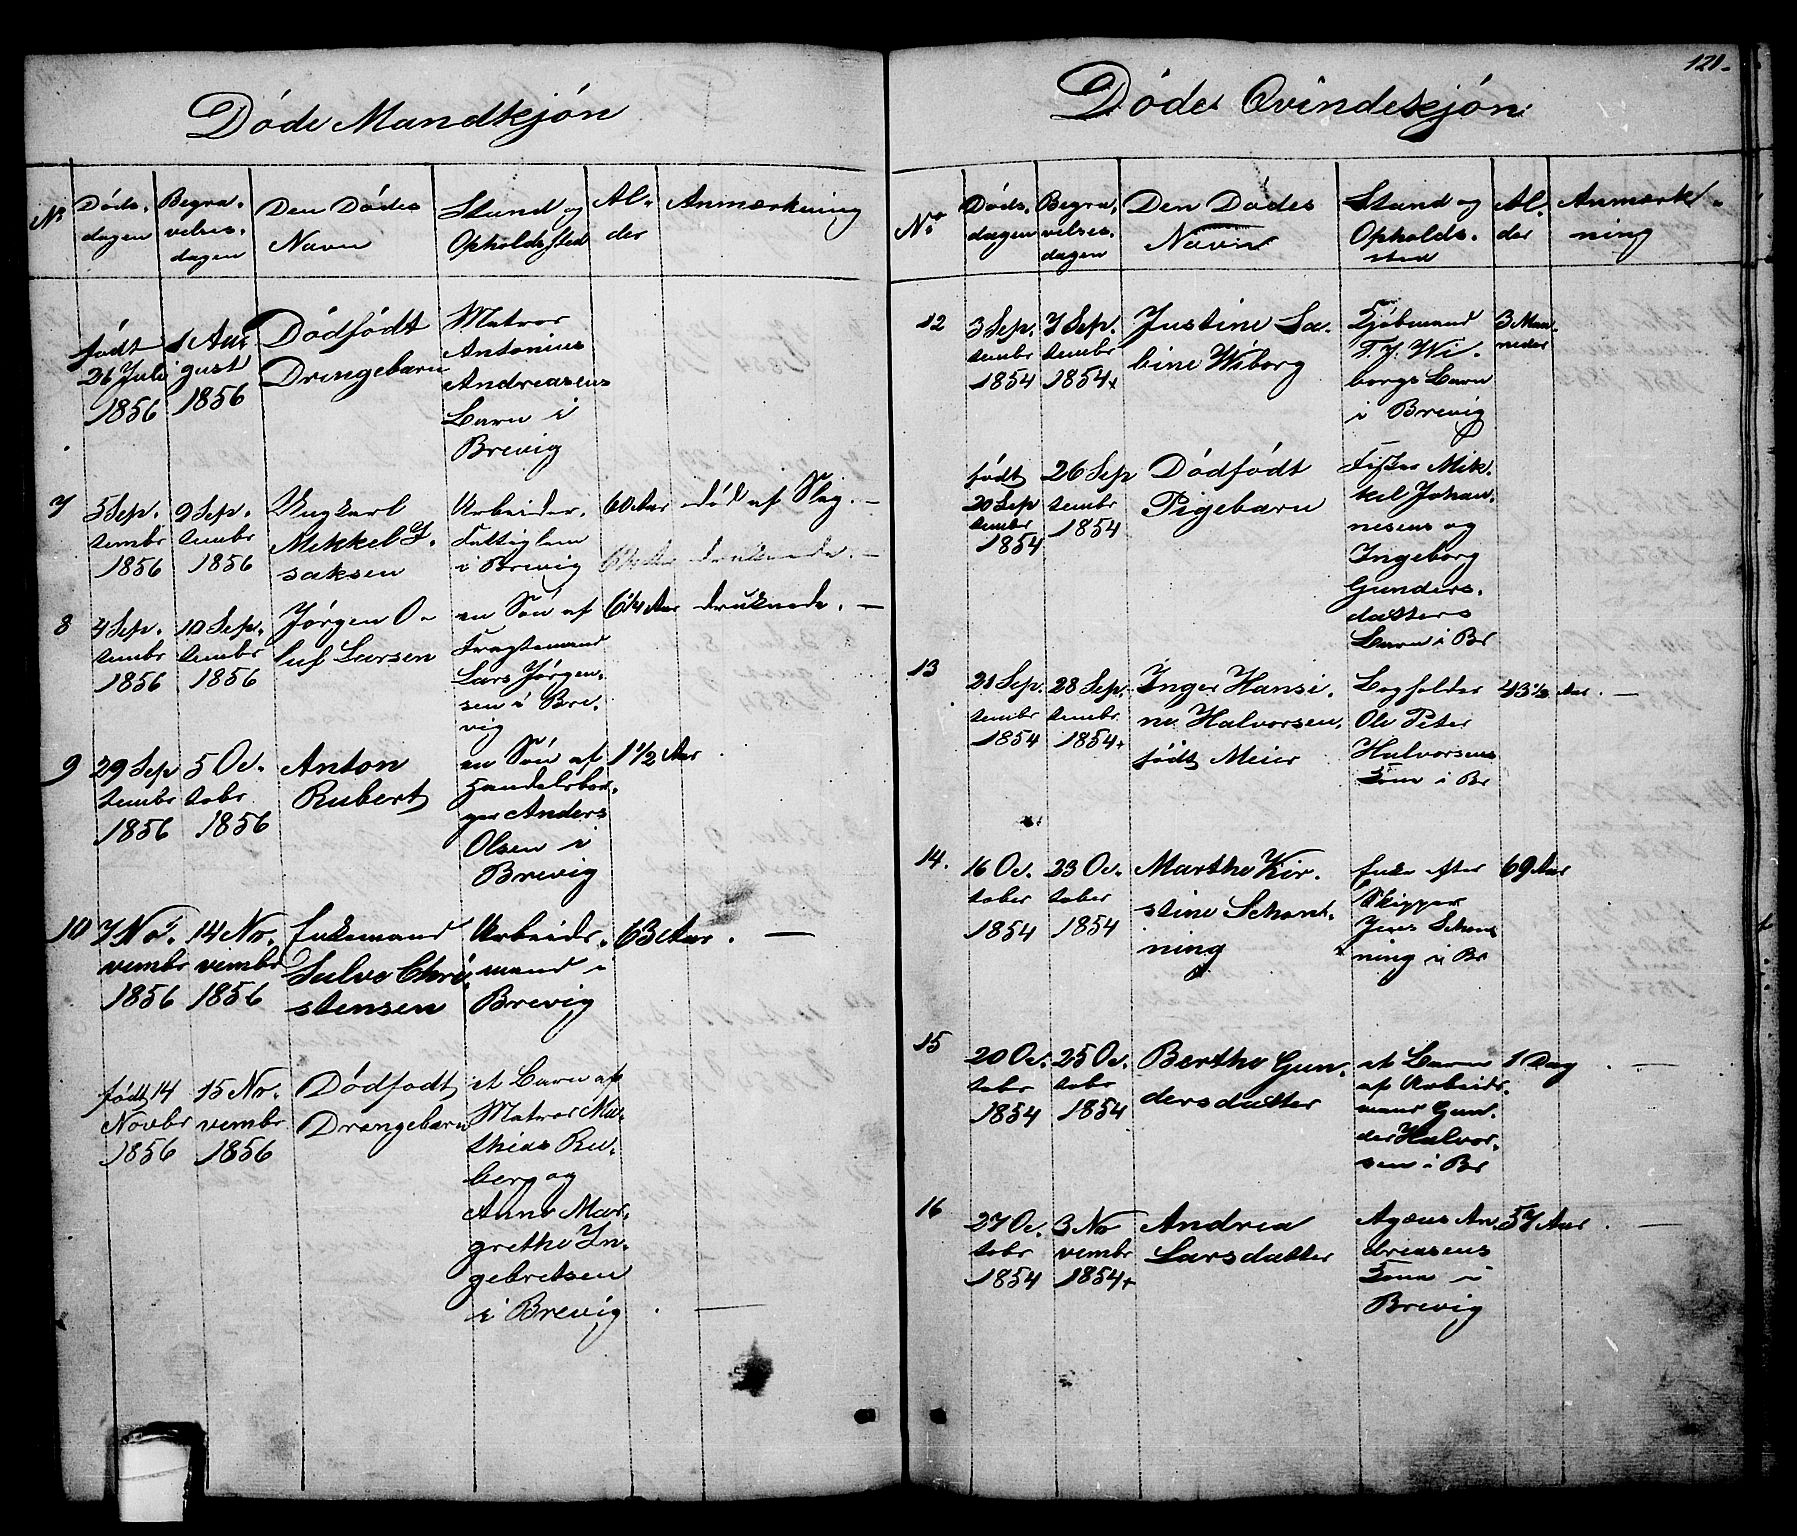 Døde Mandkjøn
No
Døds-
dagen
Begra-
velses-
dagen
Den Dødes
Navn
Stand og
Opholdssted
Al-
der
Anmærkning
født
26 Juli
1856
1 Au-
gust
1856
Dødfødt
Drengebarn
Matros
Antonius
Andreasens
Barn i
Brevig
7
5 Sep-
tembr
1856
9 Sep-
tembr
1856
Ungkarl
Mikkel I-
saksen
Arbeider,
Fattiglem
i Brevig
60 Aar
død af Slag. —
druknede. —
8
4 Sep-
tembr
1856
10 Sep-
tembr
1856
Jørgen O-
luf Larsen
en Søn af
Fragtemand
Lars Jørgen-
sen i Bre-
vig
6 1/4 Aar
druknede. —
9
29 Sep
tembr
1856
5 Oc-
tobr
1856
Anton
Rubert
en Søn af
Handelsbor-
ger Anders
Olsen i
Brevig
1 1/2 Aar
10
7 No-
vembr
1856
14 No-
vembr
1856
Enkemand
Salve Chri-
stensen
Arbeids-
mand i
Brevig
63 Aar. —
født 14
Novbr
1856
15 No-
vembr
1856
Dødfødt
Drengebarn
et Barn af
Matros Ma-
thias Ru-
berg og
Anne Mar-
grethe In-
gebretsen
i Brevig. —
121.
Døde Qvindeskjøn
No
Døds-
dagen
Begra-
velses-
dagen
Den Dødes
Navn
Stand og
Opholds-
sted
Al-
der
Anmærk-
ning
12
3 Sep-
tembr
1854
7 Sep-
tembr
1854+
Justine Sa-
bine Wiborg
Kjøbmand
T. J. Wi-
borgs Barn
i Brevig
3 Maa-
neder
født
20 Sep
tembr
1854
26 Sep
tembr
1854
Dødfødt
Pigebarn
Fisker Mik-
kel Johan-
nesens og
Ingeborg
Gunders-
datters
Barn i Br
13
21 Sep-
tembr
1854
28 Sep-
tembr
1854+
Inger Hansi-
ne Halvorsen,
født Meier
Bogholder
Ole Peter
Halvorsens
Kone i Br
43 1/2 Aar. —
14.
16 Oc-
tober
1854
23 Oc-
tober
1854
Marthe Kir-
stine Schön-
ning
Enke efter
Skipper
Jens Schøn
ning i Br
69 Aar
15
20 Oc-
tobr
1854
25 Oc-
tobr
1854
Berthe Gun-
dersdatter
et Barn
af Arbeids-
mand Gun-
der Halvor-
sen i Br
1 Dag. —
16
27 Oc-
tobr
1854
3 No
vembr
1854+
Andrea
Larsdatter
Agæus An
dreasens
Kone i
Brevig
57 Aar. —